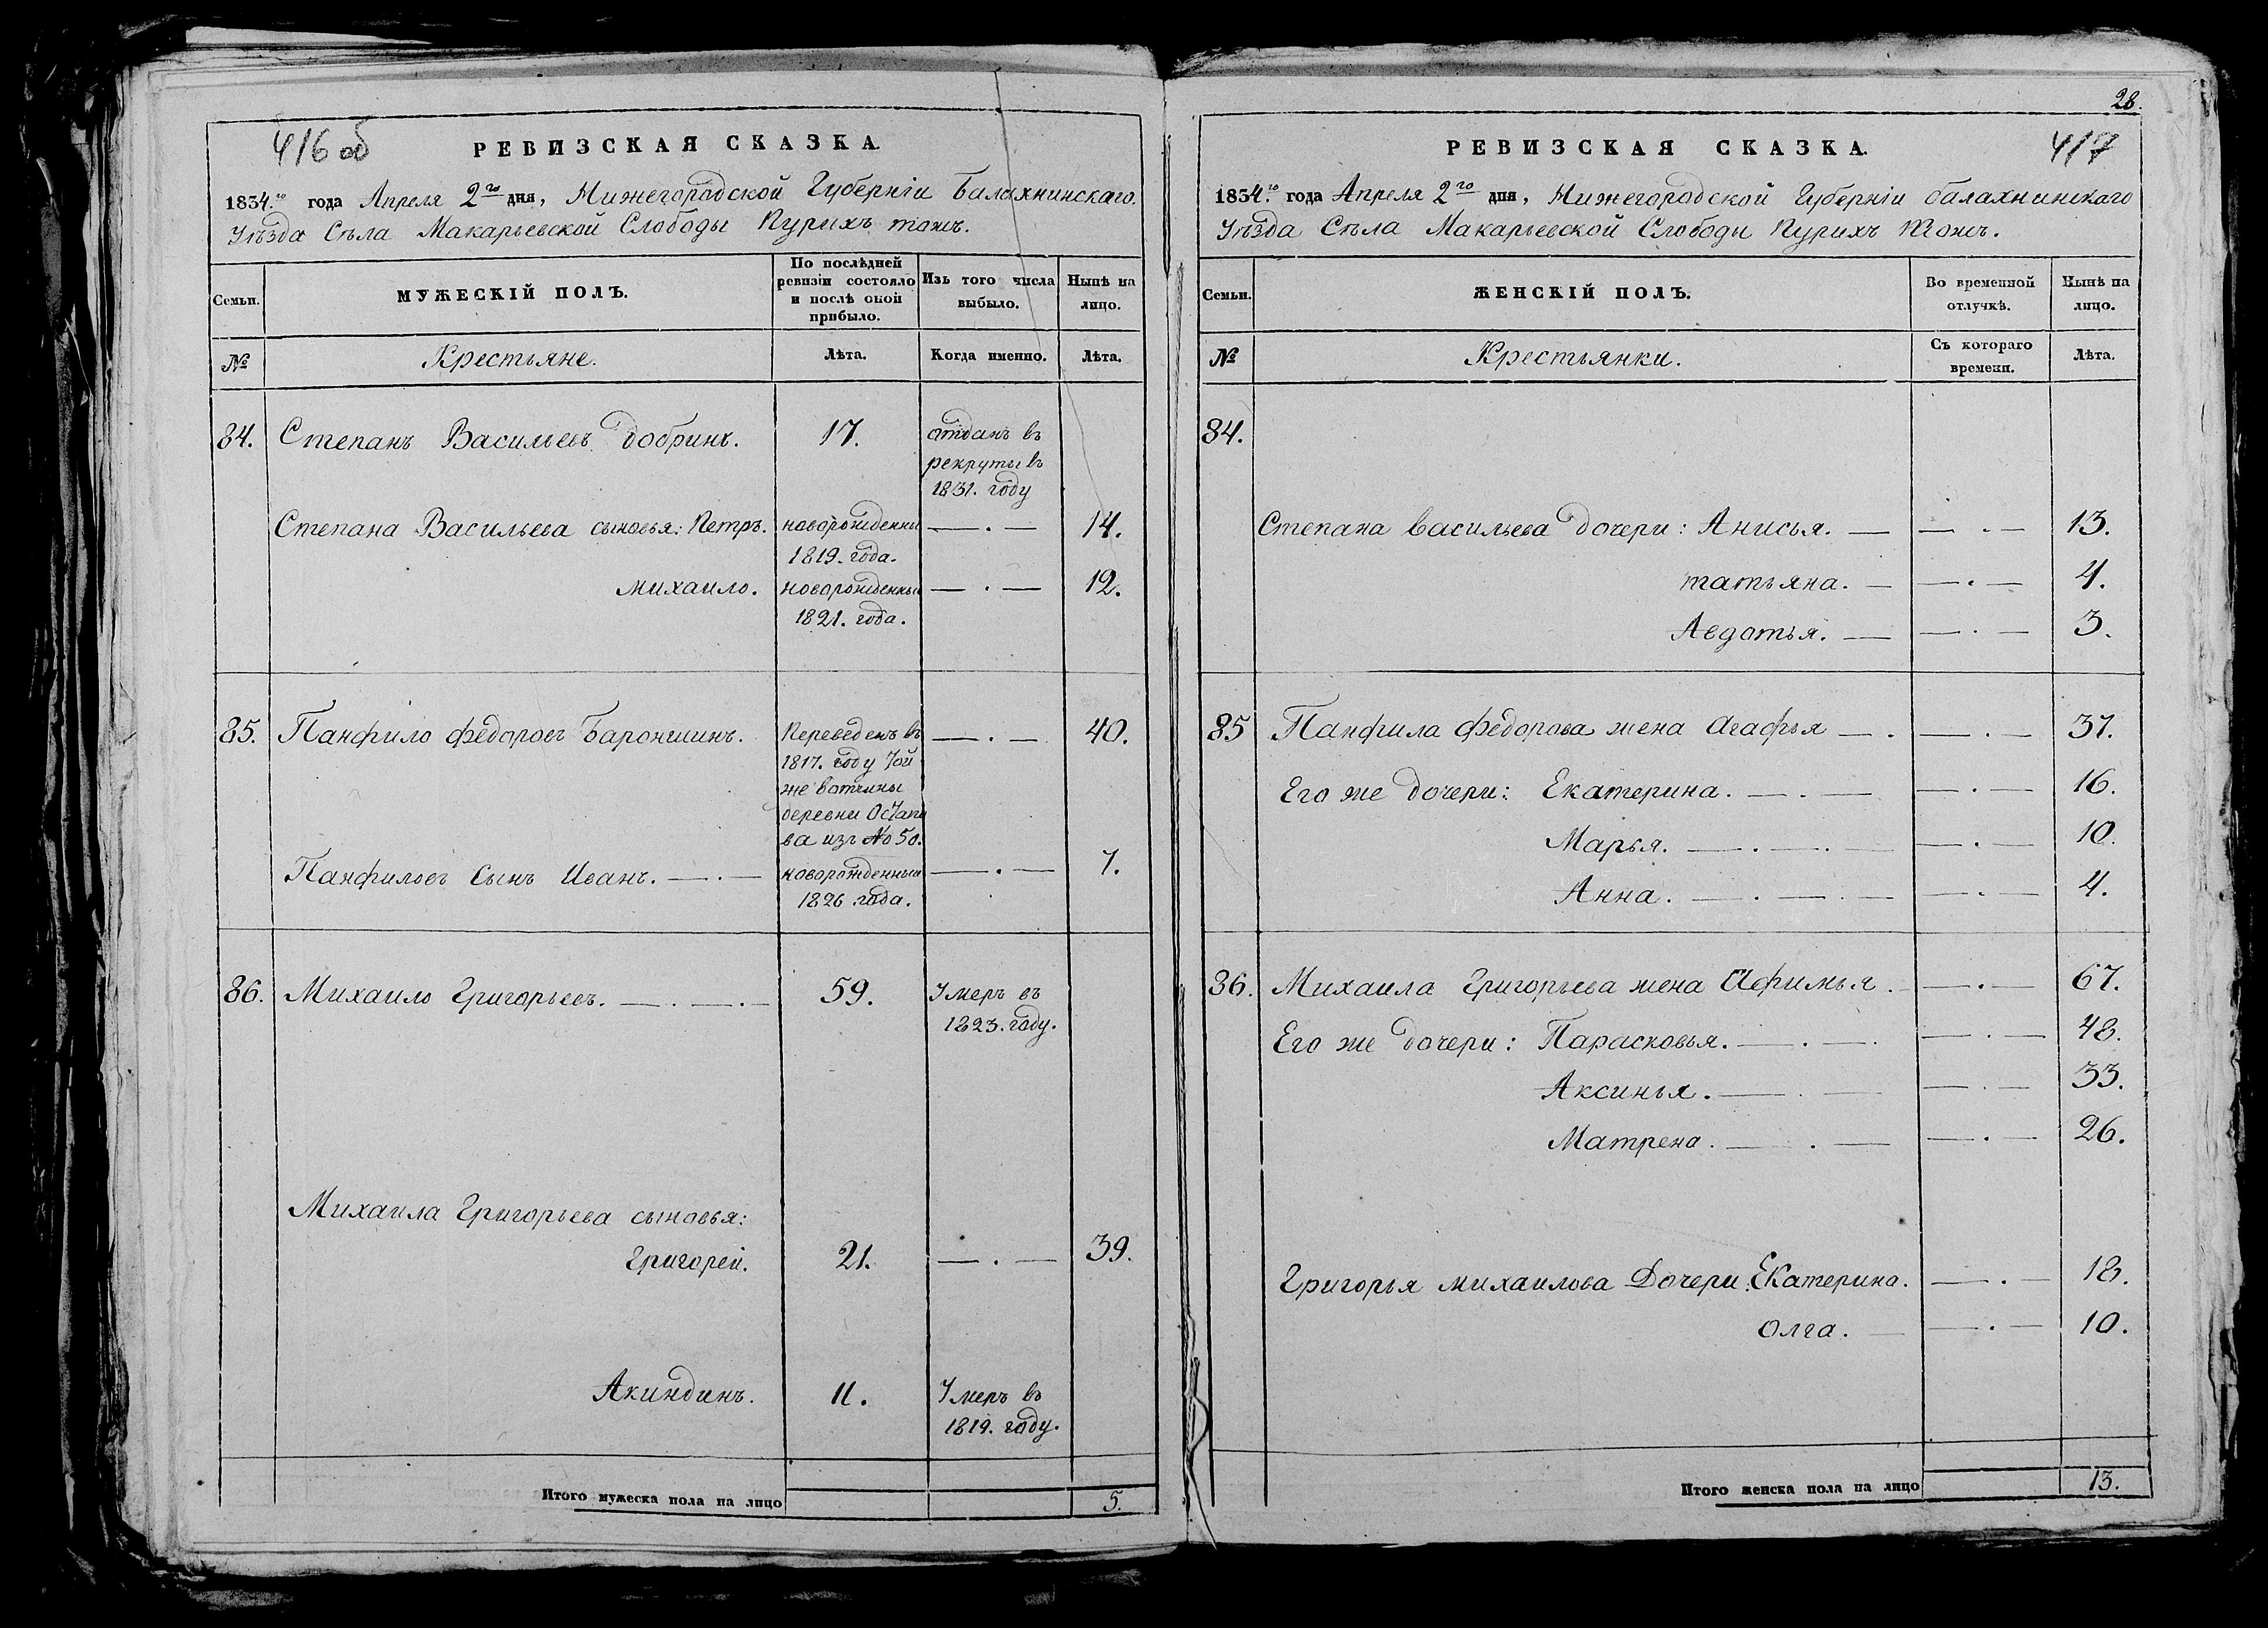 416 об
РЕВИЗСКАЯ СКАЗКА.
1834.го года Апреля 2го дня, Нижегородской Губерніи Балахнинскаго
Уѣзда Села Макарьевской Слободы Пурихъ тожъ.
Семьи.
МУЖЕСКІЙ ПОЛЪ.
По послѣдней ревизіи состояло и послѣ оной прибыло.
Изъ того числа выбыло.
Нынѣ на лицо.
№
Крестьяне.
Лѣта.
Когда именно.
Лѣта.
84. Степанъ Васильевъ Добринъ. 17. отданъ въ
рекруты въ
1831. году
Степана Васильева сыновья: Петръ. новорожденны — . — 14.
1819. года.
михаило. новорожденны — . — 12.
1821. года.
85. Панфило Федоровъ Бароншинъ. Переведенъ въ — . — 40.
1817. году той
же вотчины
деревни Остапо
ва изъ № 50.
Панфиловъ Сынъ Иванъ. — . — новорожденный — . — 7.
1826 года.
86. Михаило Григорьевъ. — . — . — 59. Умеръ въ
1823. году.
Михаила Григорьева сыновья:
Григорей. 21. — . — 39.
Акиндинъ. 11. Умеръ въ
1819. году.
Итого мужеска пола на лицо 5.
28.
417
РЕВИЗСКАЯ СКАЗКА.
1834.го года Апреля 2го дня, Нижегородской Губерніи балахнинскаго
Уѣзда Села Макарьевской Слободы Пурихъ тожъ.
Семьи.
ЖЕНСКІЙ ПОЛЪ.
Во временной отлучкѣ.
Нынѣ на лицо.
№
Крестьянки.
Съ котораго времени.
Лѣта.
84.
Степана васильева дочери: Анисья. — — . — 13.
татьяна. — — . — 4.
Авдотья. — — . — 3.
85 Панфила Федорова жена Агафья — . — . — 37.
Его же дочери: Екатерина. — . — — . — 16.
Марья. — . — . — — . — 10.
Анна. — . — . — — . — 4.
86. Михаила Григорьева жена Афимья. — . — 67.
Его же дочери: Парасковья. — . — . — . — 48.
Аксинья. — . — — . — 33.
Матрена. — . — — . — 26.
Григорья михаилова Дочери: Екатерина. — . — 18.
Олга. — — . — 10.
Итого женска пола на лицо 13.